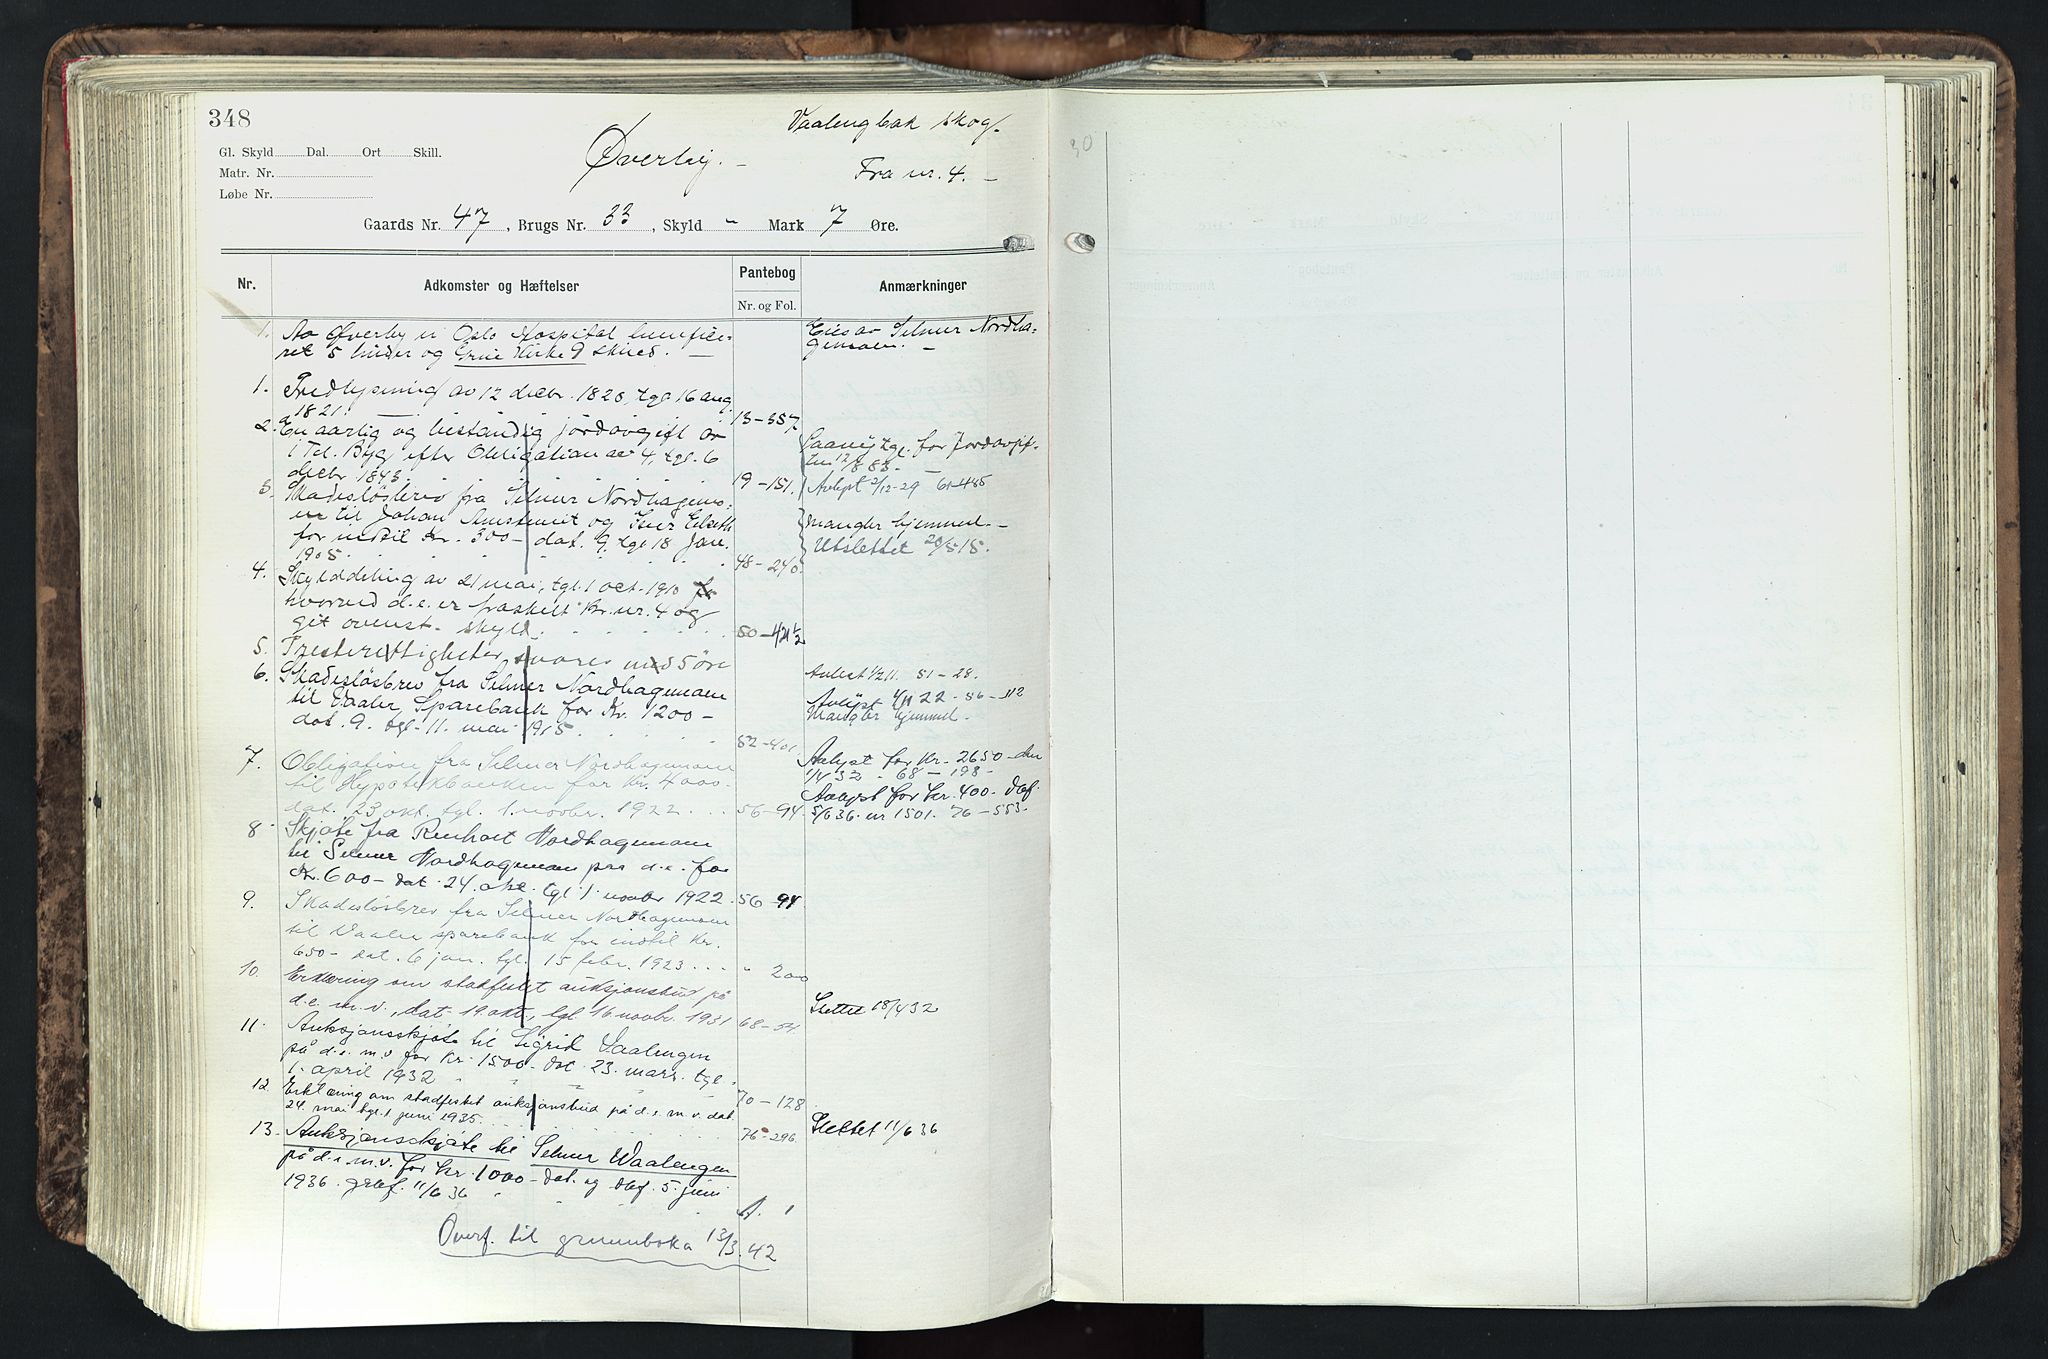 348
Vaalengbak skog.
Øverby. –
Fra nr. 4. –
Gl. Skyld Dal. Ort Skill.
Matr. Nr.
Løbe Nr.
Gaards Nr. 47, Brugs Nr. 33, Skyld „ Mark 7 Øre.
Nr. Adkomster og Hæftelser Pantebog Anmærkninger
Nr. og Fol.
1. Av Øverby er Oslo Hospital benefice-
ret 5 huder og Grue Kirke 9 skind. –
Eies av Selmer Nordha-
gensæn. –
1. Fredlysning av 12 decbr. 1820, tgl. 16 aug.
1821. 13–357
2. En aarlig og bestandig jordavgift av
1 Td. Byg efter Obligation av 4, tgl. 6
decbr 1843. 19–151.
tgl. for Jordavgif-
ten 12/8 83. –
Avlyst 2/12-29 61–485
3. Skadesløsbrev fra Selmer Nordhagens-
en til Johan og Iver
for indtil Kr. 300– dat. 9, tgl. 18 jan.
1905. 48–240.
Mangler hjemmel. –
Utslettet 20/5 15.
4. Skylddeling av 21 mai, tgl. 1 oct. 1910
hvorved d.e. er fraskilt Br. nr. 4 og
git ovenst. skyld. 50–421 1/2
5. Presterettigheter svares med 5 øre
Avløst 1/2 11. 51–28.
6. Skadesløsbrev fra Selmer Nordhagensæn
til Vaaler Sparebank for Kr. 1200–
dat. 9. tgl. 11. mai 1915. 52–401.
Avlyst 1/11 22 - 56–112
Mangler hjemmel.
7. Obligation fra Selmer Nordhagensæn
til Hypotekbanken for Kr. 4000–
dat. 23 okt. tgl. 1. novbr. 1922. 56–94
Avlyst for Kr. 2650– den
1/4 32 - 68–198–
Avlyst for kr. 400– dbf.
5/6 36 nr 1501. 76–553.
8. Skjøte fra Nordhagensæn
til Selmer Nordhagensæn paa d.e. for
Kr. 600– dat. 24. okt. tgl. 1. novbr 1922. 56–94
9. Skadesløsbrev fra Selmer Nordhagensæn
til Vaaler sparebank for indtil Kr.
650– dat. 6 jan. tgl. 15 febr. 1923 .... „ 200
10. Erklæring om stadfestet auksjonsbud på
d.e. m.v., dat. 19 okt., tgl. 16 novbr. 1931 68–54.
Slettet 18/4 32
11. Auksjonsskjøte til Sigrid Vaalengen
på d.e. m.v. for kr. 1500– dat. 23. mars. tgl.
1. april 1932 70–128
12. Erklæring om stadfestet auksjonsbud på d.e. m.v. dat.
24. mai tgl. 1 juni 1935. 76–296.
Slettet 11/6 36
13. Auksjonsskjøte til Selmer Waalengen
på d.e. m.v. for kr. 1000– dat. og dbf. 5. juni
1936. 11/6 36 A. 1
Overf. til grunnboka 13/3. 42
30